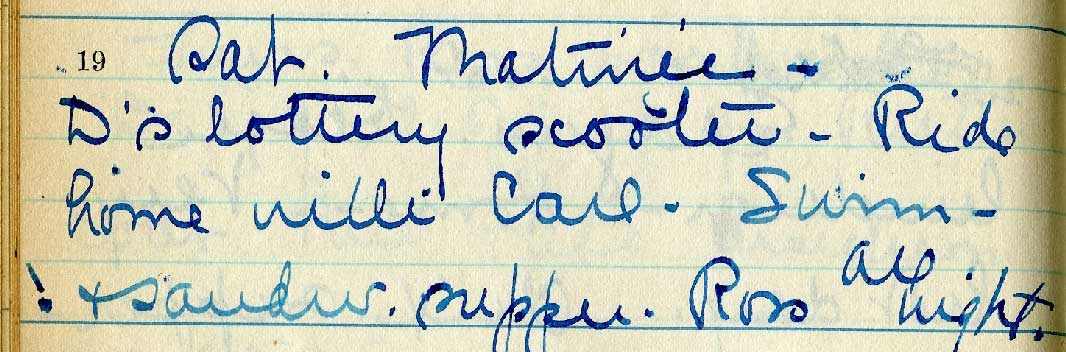 19 Sat. Matinée -
D's lottery scooter - Ride
home with Carl. Swim -
! + sandw. supper. Ross all night.